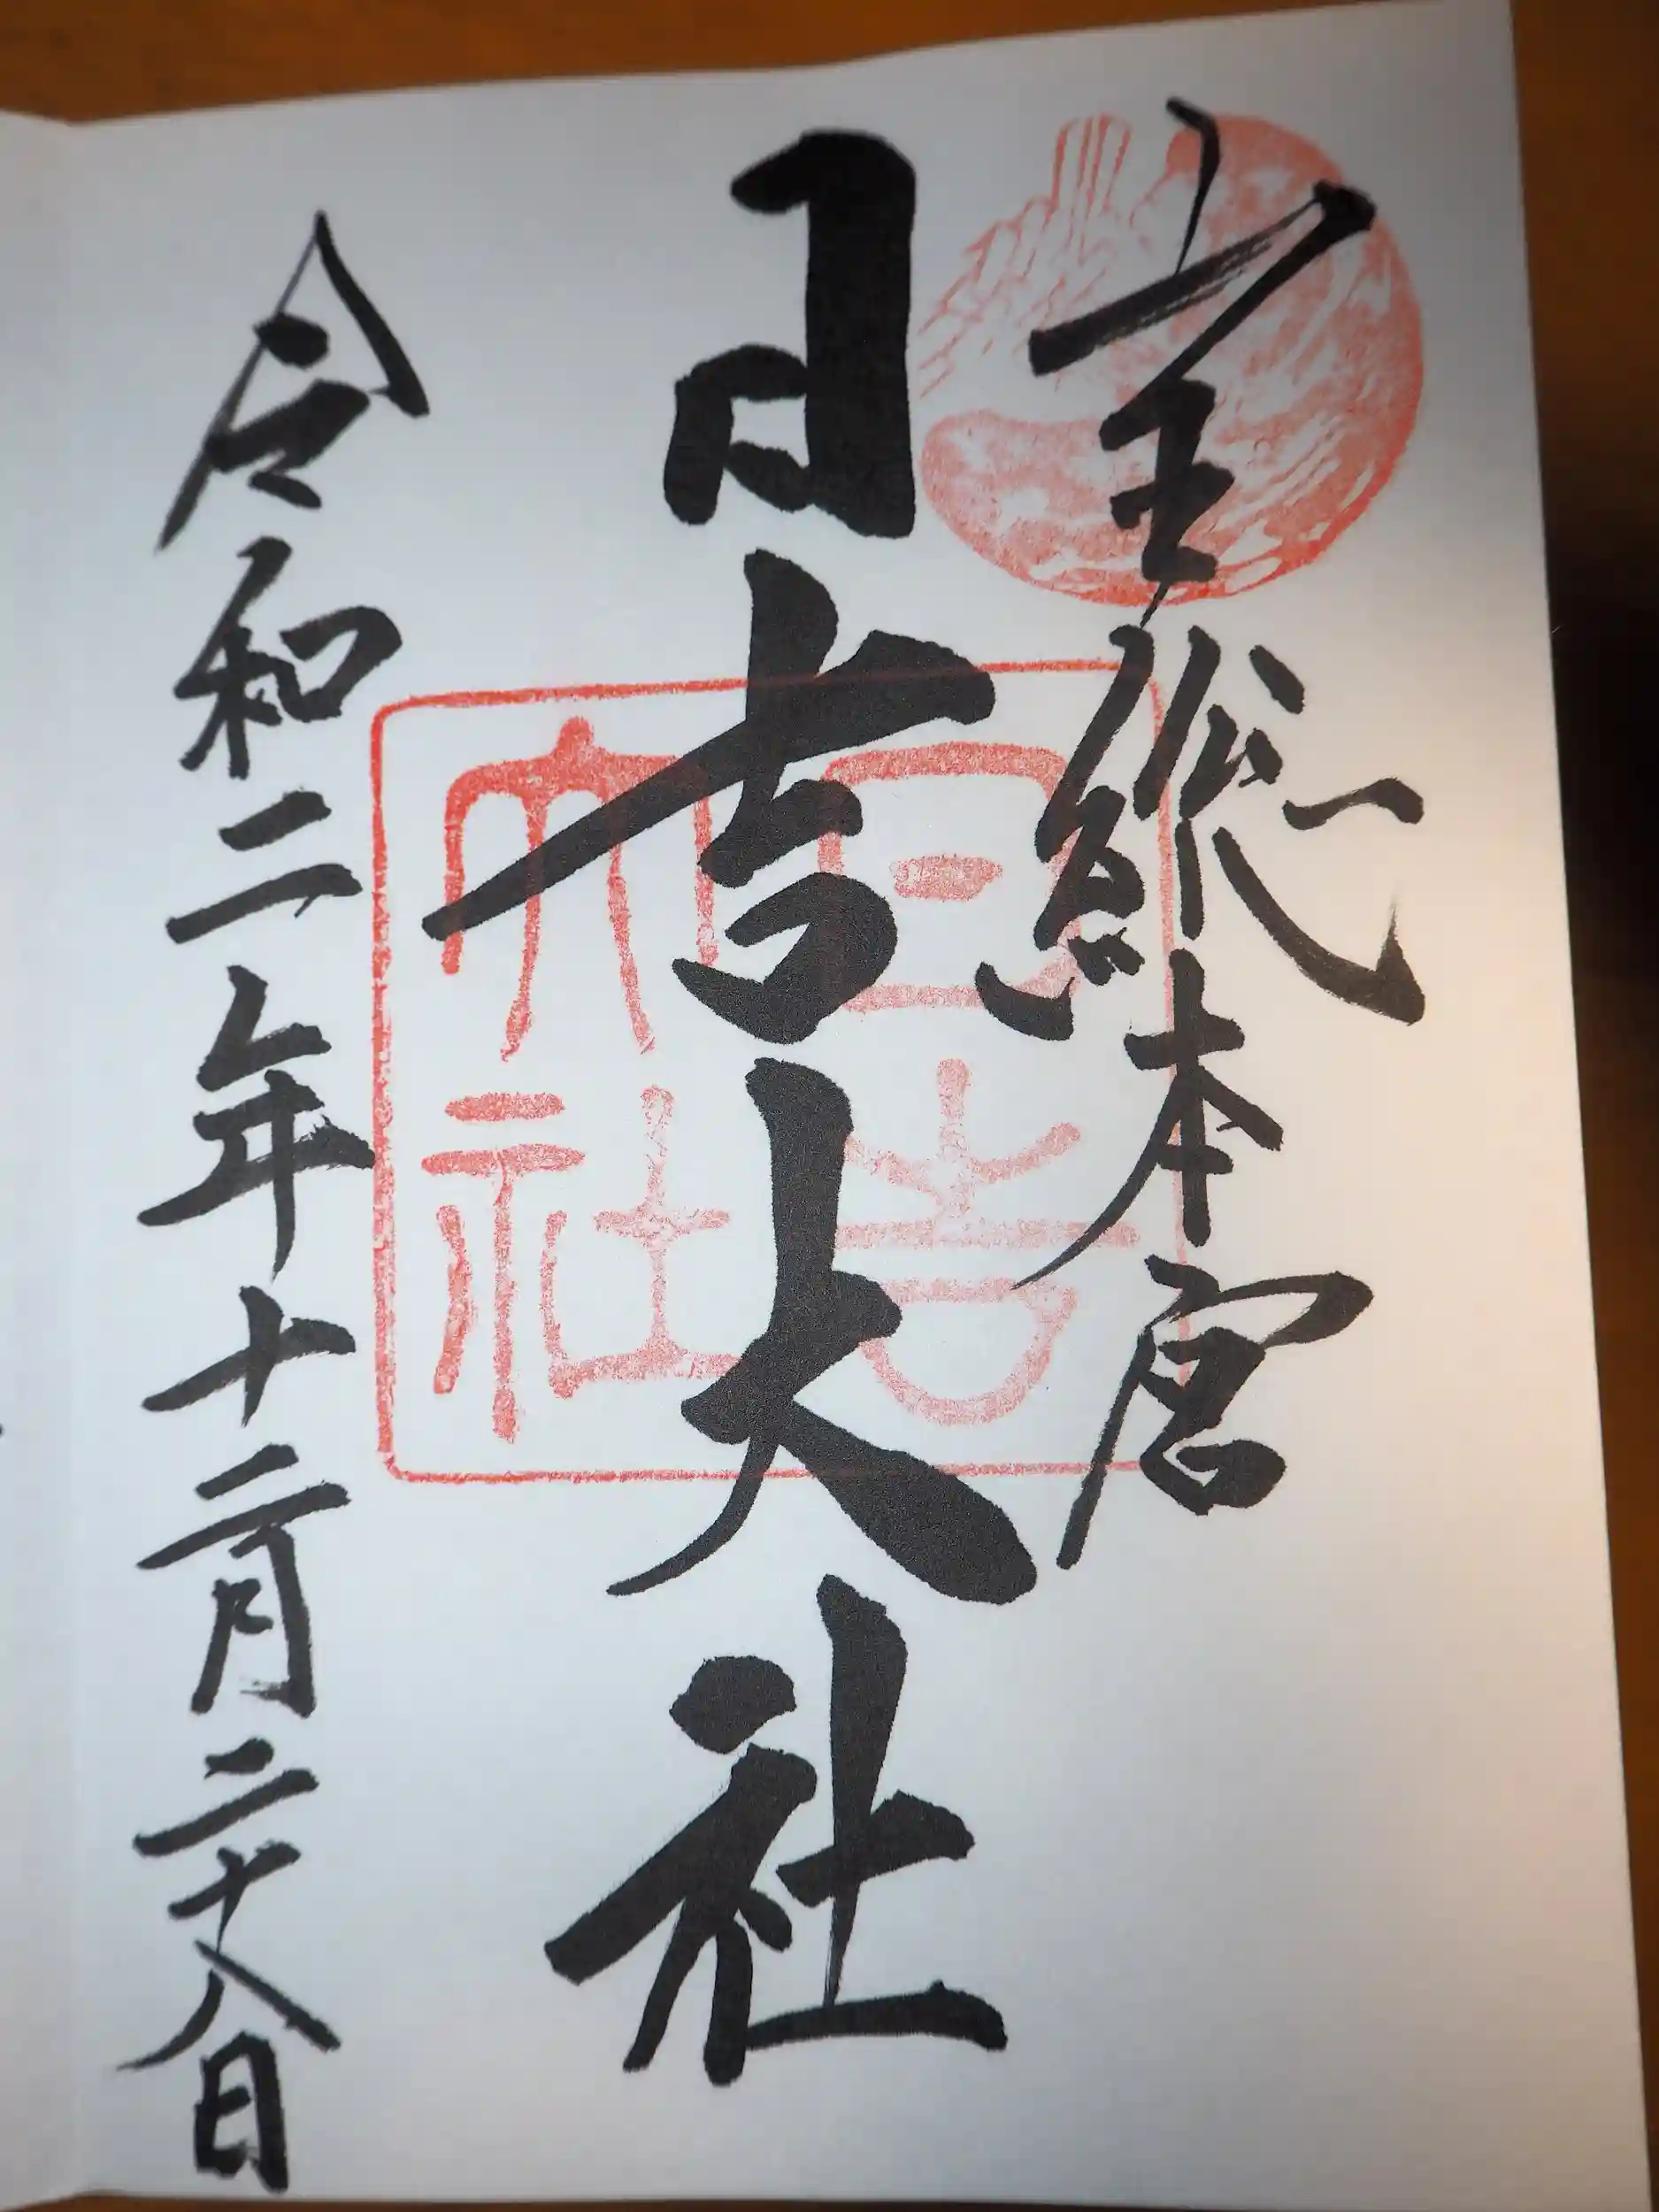 山王総本宮
日吉大社
令和二年十二月二十八日
日吉大社